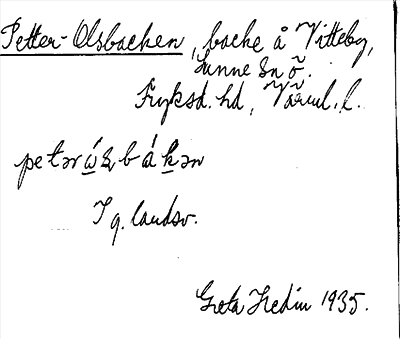 Petter-Olsbacken, backe å Vitteby,
Sunne sn ö.
Fryksd. hd, Värml. l.
petərẃsbákən
I g. landsv.
Greta Hedin 1935.